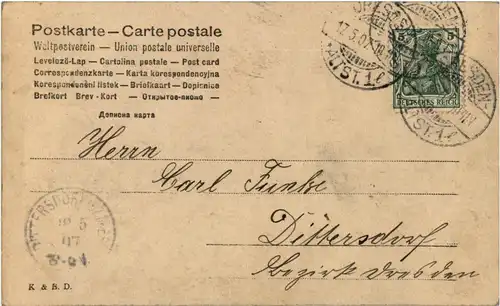 Postkarte — Carte postale
Weltpostverein — Union postale universelle
Levelező-Lap — Cartolina postale — Post card
Correspondenzkarte — Karta korespondencyjna
Korespondenční lístek — Briefkaart — Dopisnice
Brefkort Brev-Kort — Открытое письмо —
Дописна карта
5 5
DEUTSCHES REICH
17.5.07
Herrn
Carl Funke
Dittersdorf
Bezirk Dresden
5
07
K. & B. D.